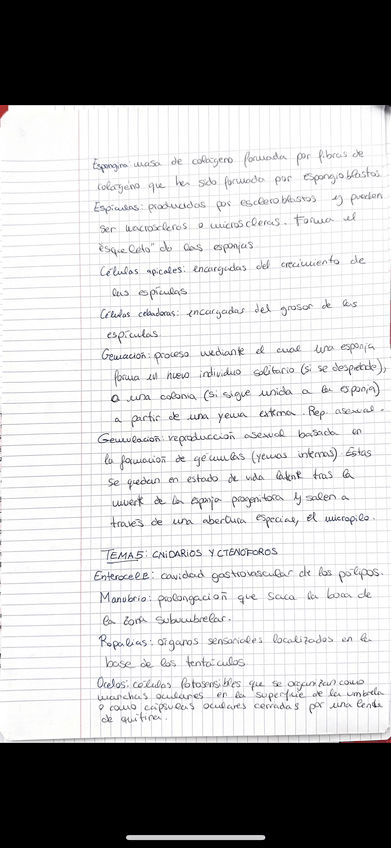 Espongina: masa de colágeno formada por fibras de
colágeno que han sido formada por espongioblastos.
Espículas: producidas por escleroblastos y pueden
ser macroscleros o microscleras. Forma el
"esqueleto" de las esponjas.
Células apicales: encargadas del crecimiento de
las espículas
Células cebadoras: encargadas del grosor de las
espículas
Gemación: proceso mediante el cual una esponja
forma un nuevo individuo solitario (si se desprende),
o una colonia (si sigue unida a la esponja)
a partir de una yema externa. Rep. asexual.
Gemulación: reproducción asexual basada en
la formación de gémulas (yemas internas) Éstas
se quedan en estado de vida latente tras la
muerte de la esponja progenitora y salen a
través de una abertura especial, el micropilo.
TEMA 5: CNIDARIOS Y CTENÓFOROS
Enterocele: cavidad gastrovascular de los pólipos.
Manubrio: prolongación que saca la boca de
la zona subumbrelar.
Ropalias: órganos sensoriales localizados en la
base de los tentáculos.
Ocelos: células fotosensibles que se organizan como
manchas oculares en la superficie de la umbrela
o como cápsulas oculares cerradas por una lente
de quitina.